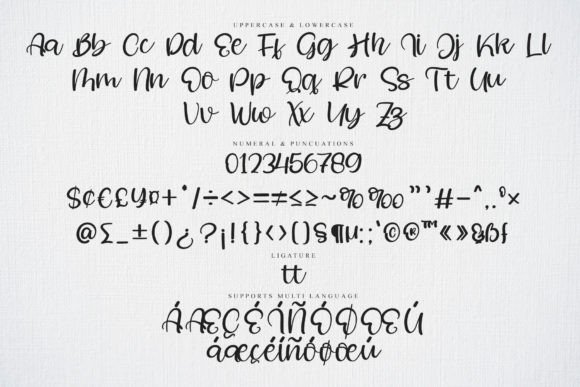 UPPERCASE & LOWERCASE
Aa Bb Cc Dd Ee Ff Gg Hh Ii Jj Kk Ll
Mm Nn Oo Pp Qq Rr Ss Tt Uu
Vv Ww Xx Yy Zz
NUMERAL & PUNCUATIONS
0123456789
$¢€£¥¤+*/÷<>=≠≤≥~%‰"'#-^,.°×
@Σ_±()¿?¡!{}<>()§¶µ:;'©®™«»&ßƒ
LIGATURE
tt
SUPPORTS MULTI LANGUAGE
ÁÆÇÉÍÑÓØŒÚ
áæçéíñóøœú